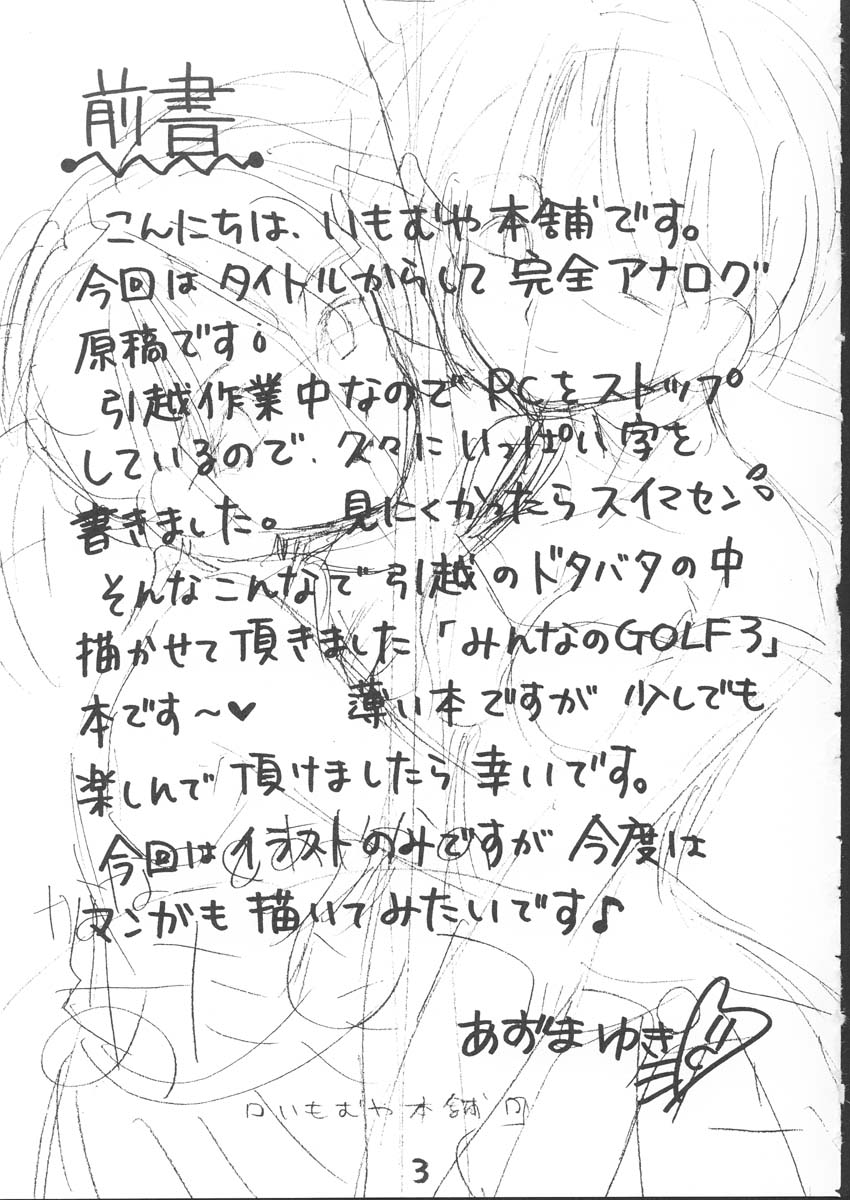 前書
こんにちは、いもむや本舗です。
今回はタイトルからして完全アナログ
原稿です。
引越作業中なので PCをストップ
しているので、久々にいっぱい字を
書きました。 見にくかったらスイマセン
そんなこんなで引越のドタバタの中
描かせて頂きました「みんなのGOLF3」
本です〜♥ 薄い本ですが 少しでも
楽しんで頂けましたら幸いです。
今回はイラストのみですが今度は
マンガも描いてみたいです♪
あずまゆき
いもむや本舗
3